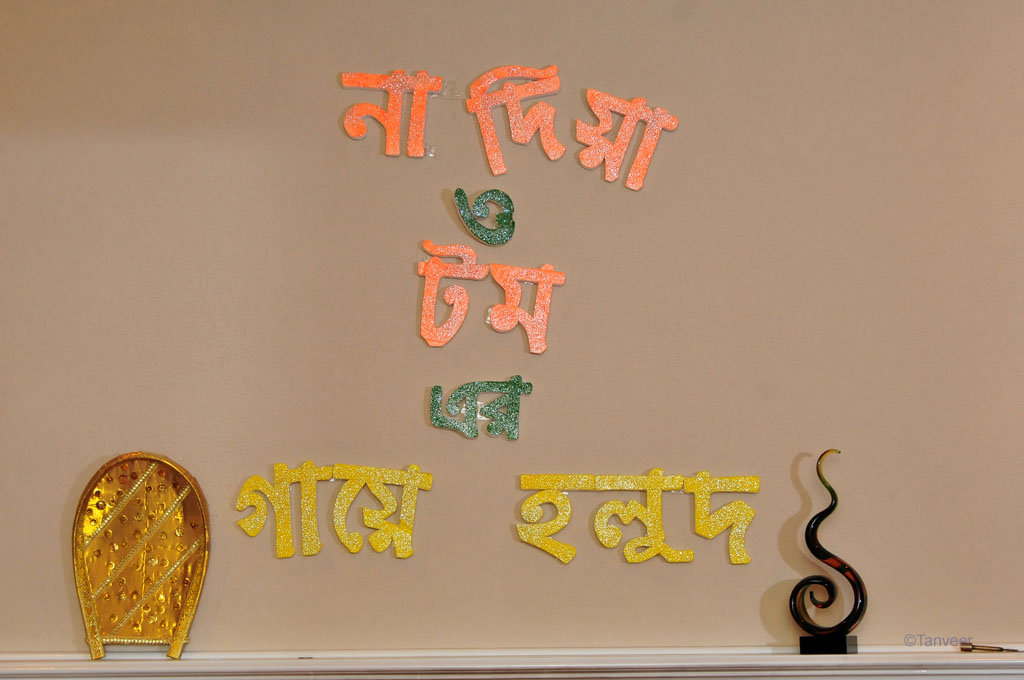 নাদিয়া
ও
টম
এর
গায়ে হলুদ
©Tanveer